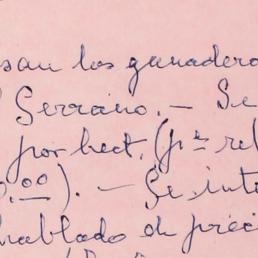 san los ganadero
Serrano. — Se
por hect. (pᵃˢ rel
0,00). — Se inte
hablado de preci